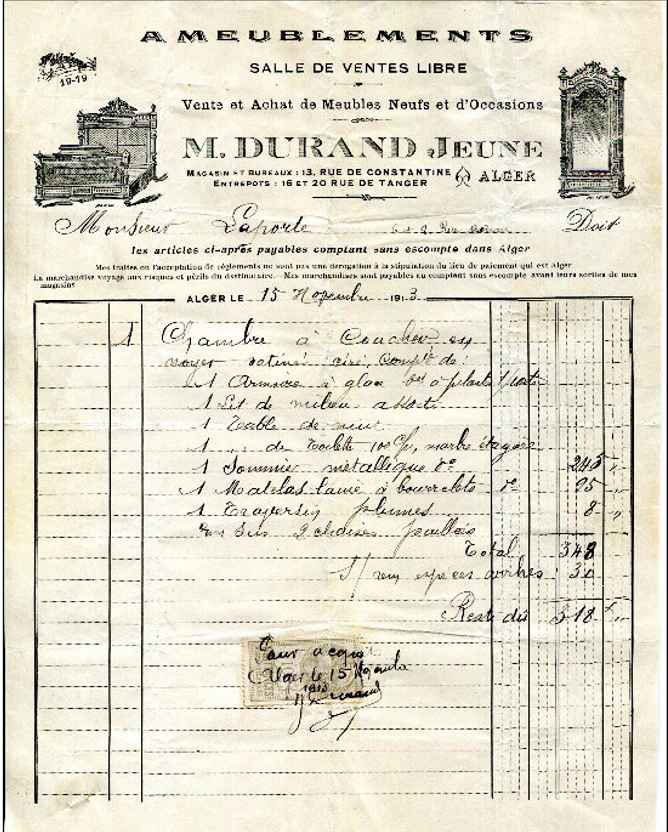 AMEUBLEMENTS
19-19
SALLE DE VENTES LIBRE
Vente et Achat de Meubles Neufs et d'Occasions
M. DURAND JEUNE
MAGASIN ET BUREAUX : 13, RUE DE CONSTANTINE
ENTREPOTS : 16 ET 20 RUE DE TANGER
ALGER
Monsieur Laporte Doit
les articles ci-après payables comptant sans escompte dans Alger
Mes traites ou l'acceptation de règlements ne sont pas une dérogation à la stipulation du lieu de paiement qui est Alger
La marchandise voyage aux risques et périls du destinataire. - Mes marchandises sont payables au comptant sans escompte avant leurs sorties de mes
magasins
ALGER LE 15 Novembre 1913
1 Chambre à Coucher en
noyer satiné ciré, Compt de :
1 Armoire à glace 1 porte
1 Lit de milieu assorti
1 Table de nuit
1 " de Toilette marbre étagère
1 Sommier métallique 245 "
1 Matelas laine à bourrelets 95 "
1 Traversin plumes 8 "
2 chaises paillées
Total 348
espèces arrhes 30
Reste dû 318 "
Pour acquit
Alger le 15 Novembre
1913
Durand